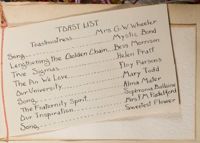 TOAST LIST
Toastmistress Mrs. G. W. Wheeler
Song Mystic Bond
Lengthening the Golden Chain Bess Morrison
True Sigmas Helen Pratt
The Pin We Love Floy Parsons
Our University Mary Todd
Song Alma Mater
The Fraternity Spirit Sophronia
Our Inspiration Mrs. F. M.
Song Sweetest Flower